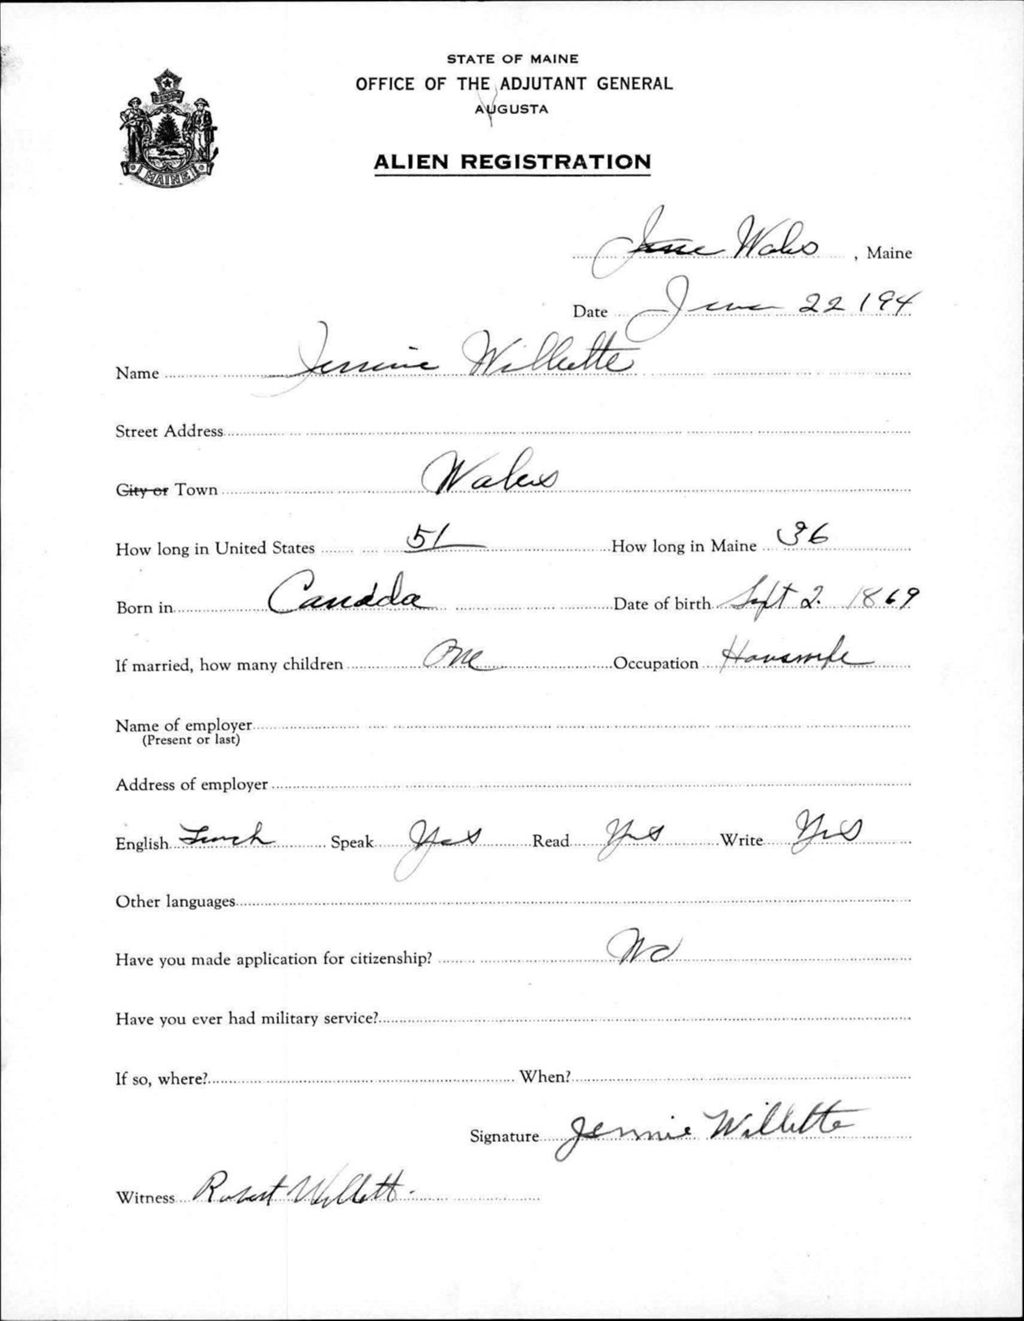 STATE OF MAINE
OFFICE OF THE ADJUTANT GENERAL
AUGUSTA
MAINE
ALIEN REGISTRATION
Wales, Maine
Date June 22 194
Name Jennie Willette
Street Address
City or Town Wales
How long in United States 51 How long in Maine 36
Born in Canadda Date of birth Sept 2. 1869
If married, how many children One Occupation Houswife
Name of employer
(Present or last)
Address of employer
English French Speak Yes Read Yes Write Yes
Other languages
Have you made application for citizenship? No
Have you ever had military service?
If so, where? When?
Signature Jennie Willette
Witness Robert Willett.